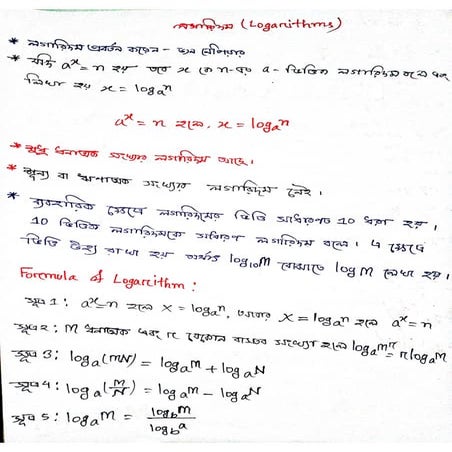 লগারিদম (Logarithms)
* লগারিদম প্রবর্তন করেন - জন নেপিয়ার
* যদি aˣ = n হয় তবে x কে n-এর a - ভিত্তিক লগারিদম বলে এবং
লিখা হয় x = logₐⁿ
aˣ = n হলে, x = logₐⁿ
* শুধু ধনাত্মক সংখ্যার লগারিদম আছে।
* শূন্য বা ঋণাত্মক সংখ্যার লগারিদম নেই।
* ব্যবহারিক ক্ষেত্রে লগারিদমের ভিত্তি সাধারণত 10 ধরা হয়।
10 ভিত্তিক লগারিদমকে সাধারণ লগারিদম বলে। এ ক্ষেত্রে
ভিত্তি উহ্য রাখা হয় অর্থাৎ log₁₀M বোঝাতে log M লেখা হয়।
Formula of Logarithm :
সূত্র 1 : aˣ = n হলে X = logₐⁿ, আবার X = logₐⁿ হলে aˣ = n
সূত্র 2 : M ধনাত্মক এবং n যেকোন বাস্তব সংখ্যা হলে logₐmⁿ = n logₐM
সূত্র 3 : logₐ(MN) = logₐM + logₐN
সূত্র 4 : logₐ(M/N) = logₐM - logₐN
সূত্র 5 : logₐM = log_b M / log_b a